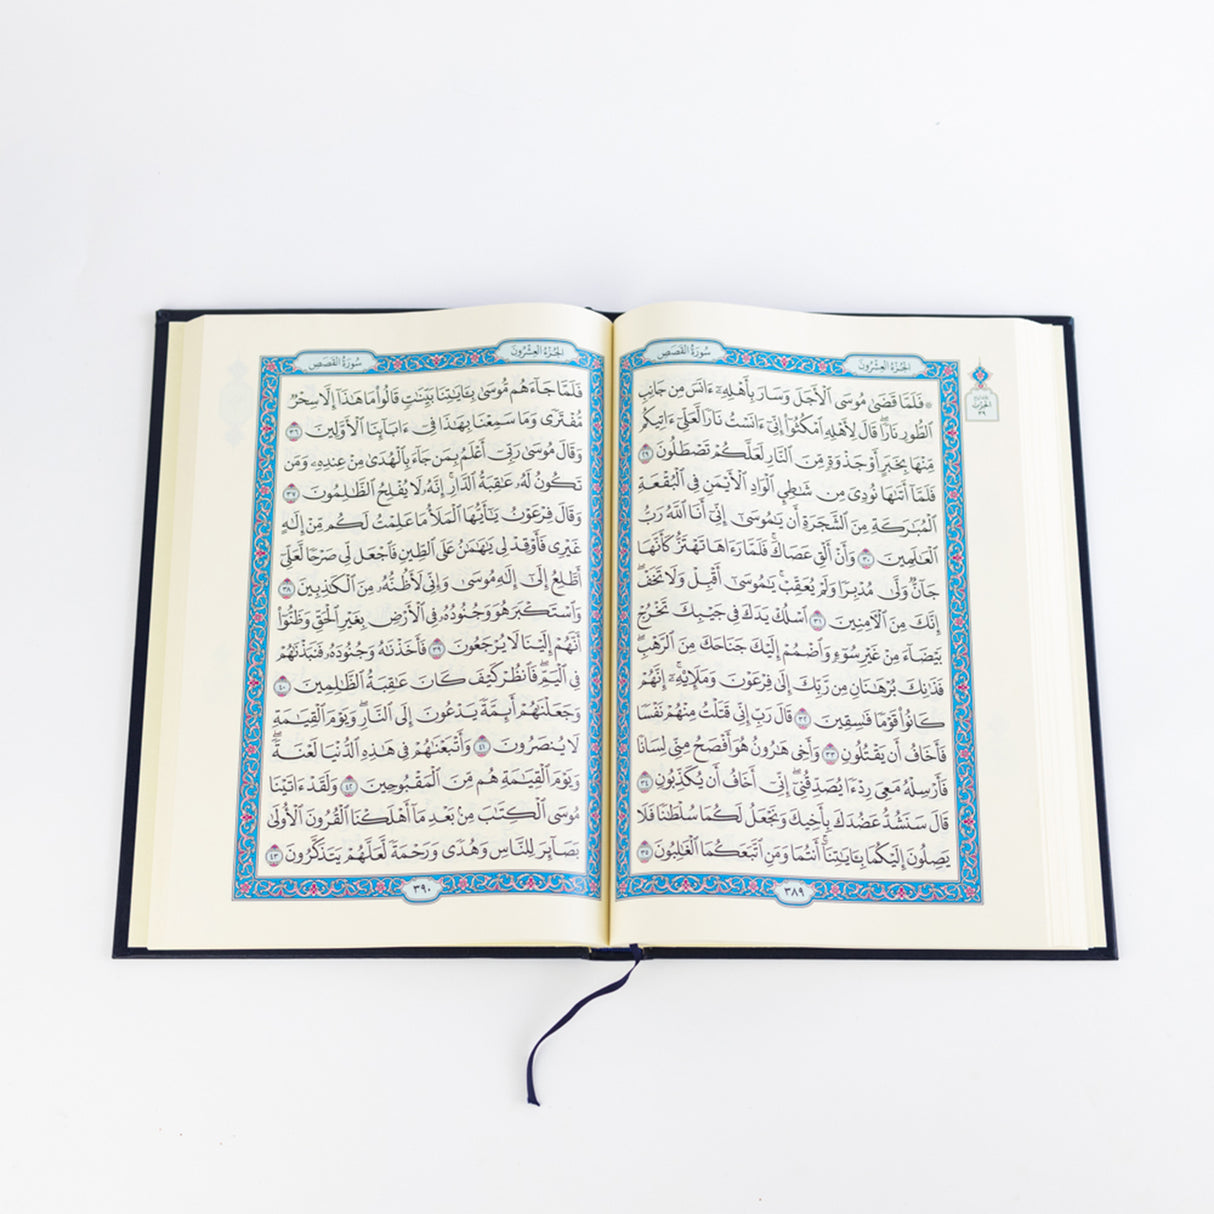 سُورَةُ القَصَصِ
الجُزْءُ العِشْرُونَ
۞ فَلَمَّا قَضَىٰ مُوسَى ٱلْأَجَلَ وَسَارَ بِأَهْلِهِۦٓ ءَانَسَ مِن جَانِبِ
ٱلطُّورِ نَارًاۖ قَالَ لِأَهْلِهِ ٱمْكُثُوٓا۟ إِنِّىٓ ءَانَسْتُ نَارًا لَّعَلِّىٓ ءَاتِيكُم
مِّنْهَا بِخَبَرٍ أَوْ جَذْوَةٍ مِّنَ ٱلنَّارِ لَعَلَّكُمْ تَصْطَلُونَ ٢٩
فَلَمَّآ أَتَىٰهَا نُودِىَ مِن شَٰطِئِ ٱلْوَادِ ٱلْأَيْمَنِ فِى ٱلْبُقْعَةِ
ٱلْمُبَٰرَكَةِ مِنَ ٱلشَّجَرَةِ أَن يَٰمُوسَىٰٓ إِنِّىٓ أَنَا ٱللَّهُ رَبُّ
ٱلْعَٰلَمِينَ ٣٠ وَأَنْ أَلْقِ عَصَاكَۖ فَلَمَّا رَءَاهَا تَهْتَزُّ كَأَنَّهَا
جَآنٌّ وَلَّىٰ مُدْبِرًا وَلَمْ يُعَقِّبْۚ يَٰمُوسَىٰٓ أَقْبِلْ وَلَا تَخَفْۖ
إِنَّكَ مِنَ ٱلْءَامِنِينَ ٣١ ٱسْلُكْ يَدَكَ فِى جَيْبِكَ تَخْرُجْ
بَيْضَآءَ مِنْ غَيْرِ سُوٓءٍ وَٱضْمُمْ إِلَيْكَ جَنَاحَكَ مِنَ ٱلرَّهْبِۖ
فَذَٰنِكَ بُرْهَٰنَانِ مِن رَّبِّكَ إِلَىٰ فِرْعَوْنَ وَمَلَإِي۟هِۦٓۚ إِنَّهُمْ
كَانُوا۟ قَوْمًا فَٰسِقِينَ ٣٢ قَالَ رَبِّ إِنِّى قَتَلْتُ مِنْهُمْ نَفْسًا
فَأَخَافُ أَن يَقْتُلُونِ ٣٣ وَأَخِى هَٰرُونُ هُوَ أَفْصَحُ مِنِّى لِسَانًا
فَأَرْسِلْهُ مَعِىَ رِدْءًا يُصَدِّقُنِىٓۖ إِنِّىٓ أَخَافُ أَن يُكَذِّبُونِ ٣٤
قَالَ سَنَشُدُّ عَضُدَكَ بِأَخِيكَ وَنَجْعَلُ لَكُمَا سُلْطَٰنًا فَلَا
يَصِلُونَ إِلَيْكُمَا بِـَٔايَٰتِنَآۚ أَنتُمَا وَمَنِ ٱتَّبَعَكُمَا ٱلْغَٰلِبُونَ ٣٥
٣٨٩
الحِزْب
٣٩
سُورَةُ القَصَصِ
الجُزْءُ العِشْرُونَ
فَلَمَّا جَآءَهُم مُّوسَىٰ بِـَٔايَٰتِنَا بَيِّنَٰتٍ قَالُوا۟ مَا هَٰذَآ إِلَّا سِحْرٌ
مُّفْتَرًى وَمَا سَمِعْنَا بِهَٰذَا فِىٓ ءَابَآئِنَا ٱلْأَوَّلِينَ ٣٦
وَقَالَ مُوسَىٰ رَبِّىٓ أَعْلَمُ بِمَن جَآءَ بِٱلْهُدَىٰ مِنْ عِندِهِۦ وَمَن
تَكُونُ لَهُۥ عَٰقِبَةُ ٱلدَّارِۚ إِنَّهُۥ لَا يُفْلِحُ ٱلظَّٰلِمُونَ ٣٧
وَقَالَ فِرْعَوْنُ يَٰٓأَيُّهَا ٱلْمَلَأُ مَا عَلِمْتُ لَكُم مِّنْ إِلَٰهٍ
غَيْرِى فَأَوْقِدْ لِى يَٰهَٰمَٰنُ عَلَى ٱلطِّينِ فَٱجْعَل لِّى صَرْحًا لَّعَلِّىٓ
أَطَّلِعُ إِلَىٰٓ إِلَٰهِ مُوسَىٰ وَإِنِّى لَأَظُنُّهُۥ مِنَ ٱلْكَٰذِبِينَ ٣٨
وَٱسْتَكْبَرَ هُوَ وَجُنُودُهُۥ فِى ٱلْأَرْضِ بِغَيْرِ ٱلْحَقِّ وَظَنُّوٓا۟
أَنَّهُمْ إِلَيْنَا لَا يُرْجَعُونَ ٣٩ فَأَخَذْنَٰهُ وَجُنُودَهُۥ فَنَبَذْنَٰهُمْ
فِى ٱلْيَمِّۖ فَٱنظُرْ كَيْفَ كَانَ عَٰقِبَةُ ٱلظَّٰلِمِينَ ٤٠
وَجَعَلْنَٰهُمْ أَئِمَّةً يَدْعُونَ إِلَى ٱلنَّارِۖ وَيَوْمَ ٱلْقِيَٰمَةِ
لَا يُنصَرُونَ ٤١ وَأَتْبَعْنَٰهُمْ فِى هَٰذِهِ ٱلدُّنْيَا لَعْنَةًۖ
وَيَوْمَ ٱلْقِيَٰمَةِ هُم مِّنَ ٱلْمَقْبُوحِينَ ٤٢ وَلَقَدْ ءَاتَيْنَا
مُوسَى ٱلْكِتَٰبَ مِنۢ بَعْدِ مَآ أَهْلَكْنَا ٱلْقُرُونَ ٱلْأُولَىٰ
بَصَآئِرَ لِلنَّاسِ وَهُدًى وَرَحْمَةً لَّعَلَّهُمْ يَتَذَكَّرُونَ ٤٣
٣٩٠